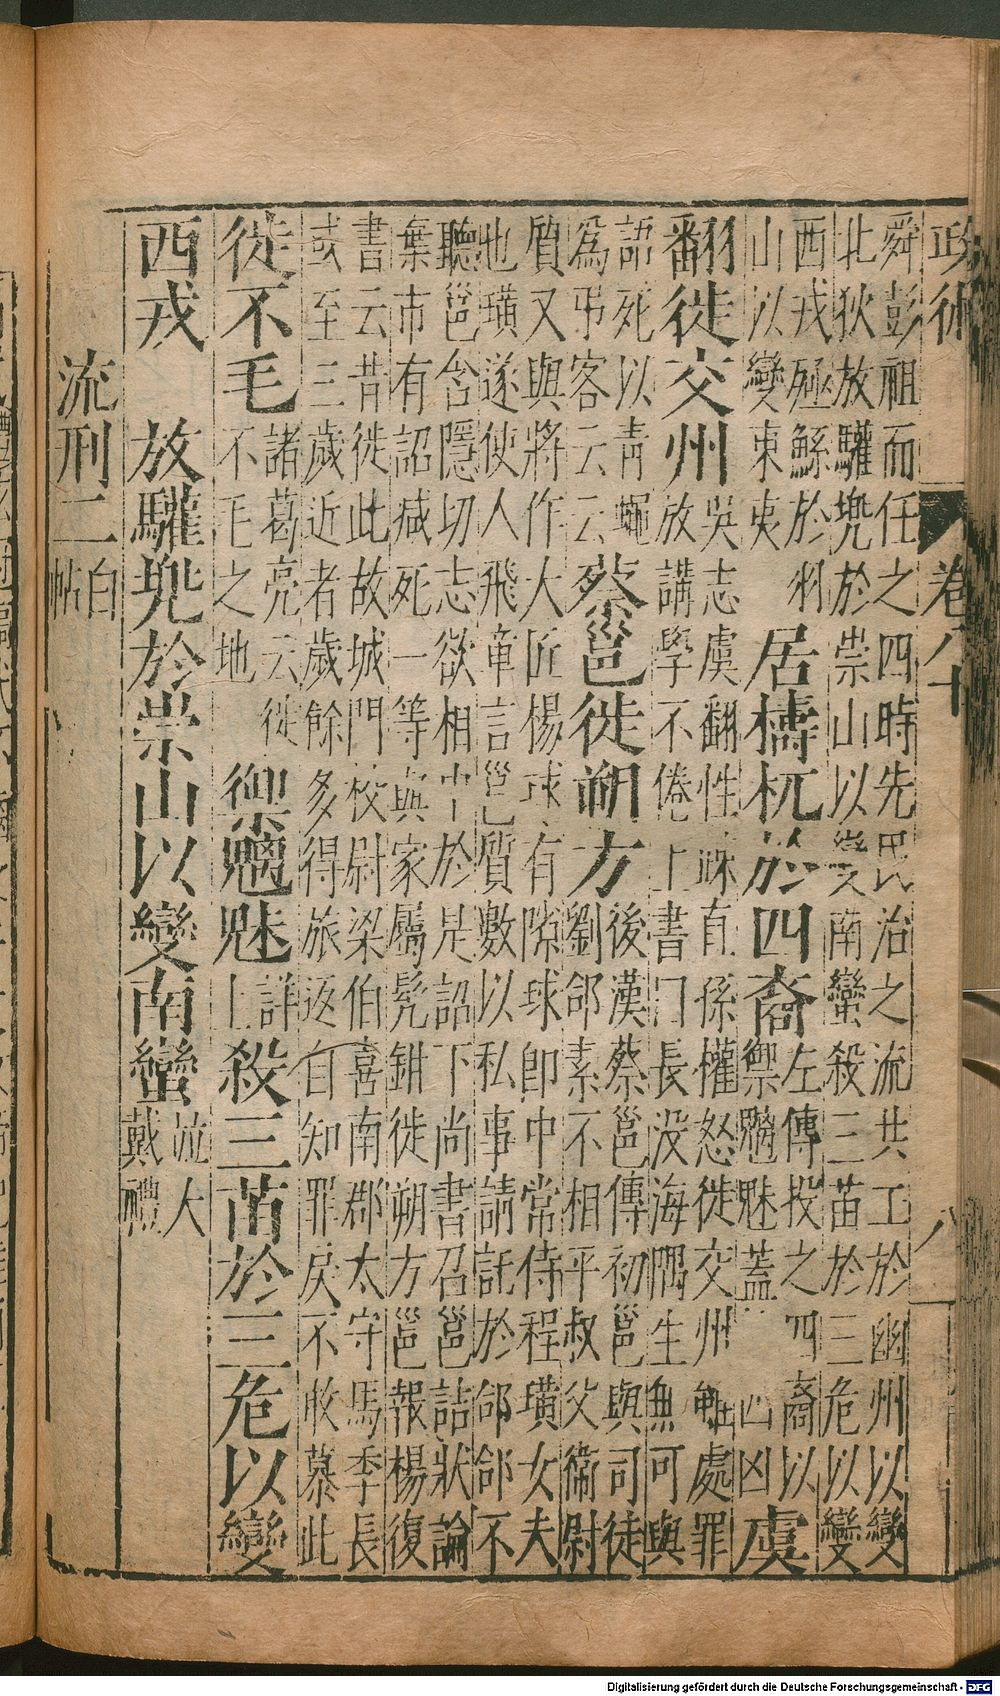 政術 卷八十 八
舜彭祖而任之四時先民治之流共工於幽州以變
北狄放驩兜於崇山以變南蠻殺三苗於三危以變
西戎殛鯀於羽
山以變東夷
居檮杌於四裔
左傳投之四裔以
禦魑魅蓋四凶
虞
翻徙交州
吳志虞翻性疎直孫權怒徙交州雖處罪
放講學不倦上書門長没海隅生無可與
語死以青蠅
為弔客云云
蔡邕徙朔方
後漢蔡邕傳初邕與司徒
劉郃素不相平叔父衛尉
質又與將作大匠楊球有隙球即中常侍程璜女夫
也璜遂使人飛章言邕質數以私事請託於郃郃不
聽邕含隱切志欲相中於是詔下尚書召邕詰狀論
棄市有詔减死一等與家屬髡鉗徙朔方邕報楊復
書云昔徙此故城門校尉梁伯喜南郡太守馬季長
或至三歲近者歲餘多得旅返自知罪戾不敢慕此
徙不毛
諸葛亮云徙
不毛之地
禦魑魅
詳
上
殺三苗於三危以變
西戎
放驩兜於崇山以變南蠻
並大
戴禮
流刑二
白
帖
Digitalisierung gefördert durch die Deutsche Forschungsgemeinschaft - DFG